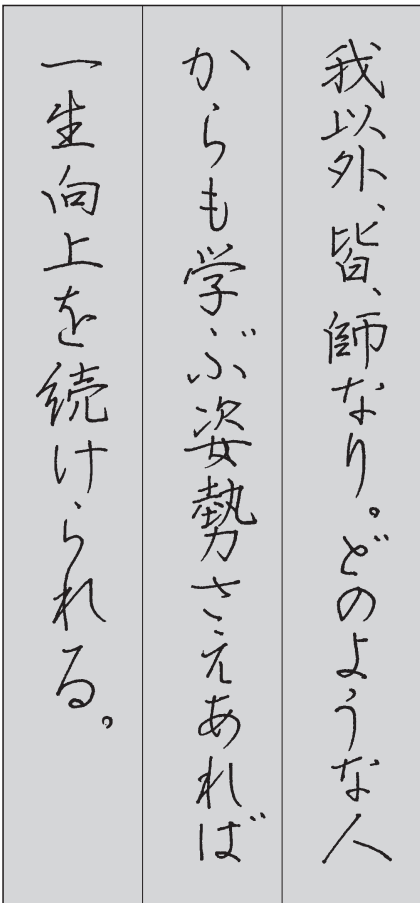 我以外、皆、師なり。どのような人
からも学ぶ姿勢さえあれば
一生向上を続けられる。